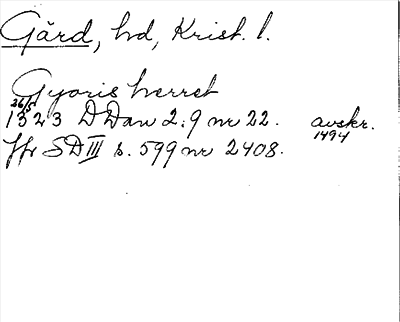 Gärd, hd, Krist. l.
Gyoris herret
26/5
1323 DDan 2:9 nr 22. avskr.
1494
Jfr SD III s. 599 nr 2408.